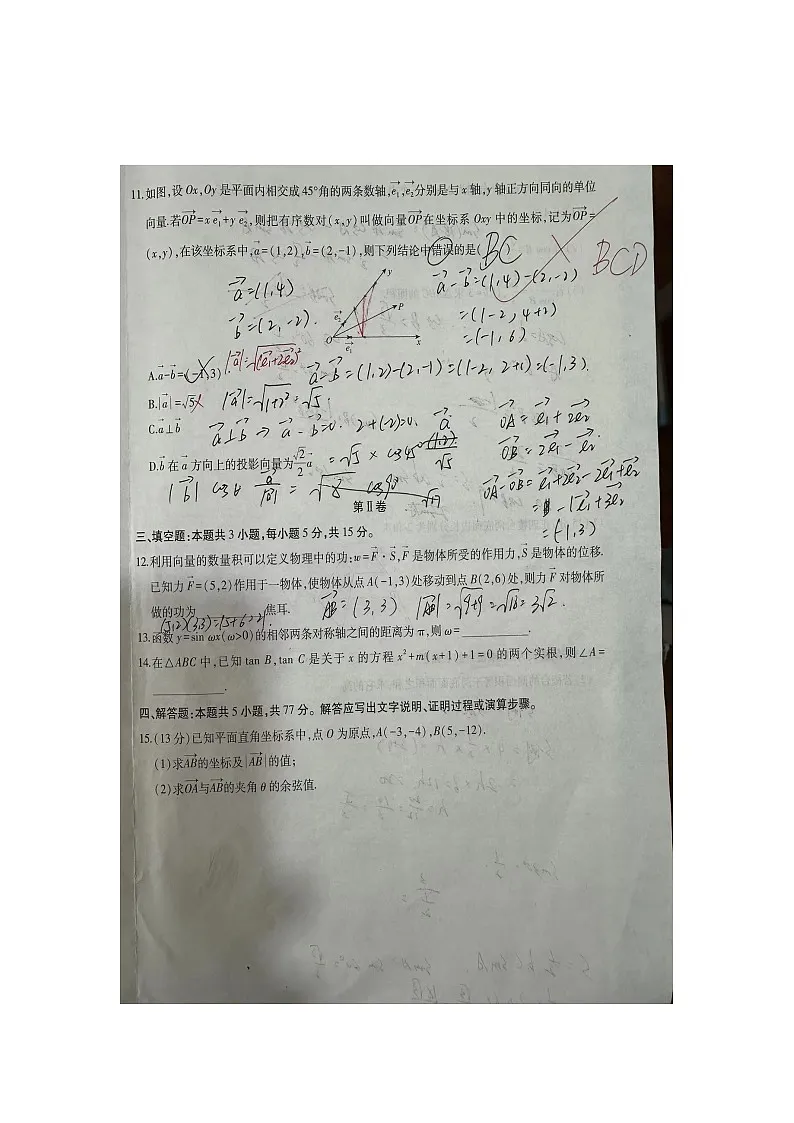 11.如图,设 Ox,Oy 是平面内相交成 45°角的两条数轴,e₁,e₂分别是与 x 轴,y 轴正方向同向的单位
向量.若OP=x e₁+y e₂,则把有序数对(x,y)叫做向量OP在坐标系 Oxy 中的坐标,记为OP=
(x,y),在该坐标系中,a=(1,2),b=(2,-1),则下列结论中错误的是( BC )
BCD
a=(1,4)
b=(2,-2).
a-b=(1,4)-(2,-2)
=(1-2,4+2)
=(-1,6)
y
P
e₂
O
e₁
x
A.a-b=(-1,3)
|a|=√(e₁+2e₂)²
a-b=(1,2)-(2,-1)=(1-2,2+1)=(-1,3).
B.|a|=√5
|a|=√1+2²=√5.
C.a⊥b
a⊥b⇒a-b=0. 2+(-2)=0. a
OA=e₁+2e₂
OB=2e₁-e₂
D.b 在 a 方向上的投影向量为√2/2 a
=√5×cos45° (1,2)/√5
OA-OB=e₁+2e₂-2e₁+e₂
=-1e₁+3e₂
=(-1,3)
第Ⅱ卷
三、填空题:本题共 3 小题,每小题 5 分,共 15 分。
12.利用向量的数量积可以定义物理中的功:w=F·S,F 是物体所受的作用力,S 是物体的位移.
已知力 F=(5,2)作用于一物体,使物体从点 A(-1,3)处移动到点 B(2,6)处,则力 F 对物体所
做的功为________焦耳.
(5,2)(3,3)=15+6=21
AB=(3,3) |AB|=√9+9=√18=3√2.
13.函数 y=sin ωx(ω>0)的相邻两条对称轴之间的距离为 π,则 ω=________.
14.在△ABC 中,已知 tan B,tan C 是关于 x 的方程 x²+m(x+1)+1=0 的两个实根,则∠A=
________.
四、解答题:本题共 5 小题,共 77 分。解答应写出文字说明、证明过程或演算步骤。
15.(13 分)已知平面直角坐标系中,点 O 为原点,A(-3,-4),B(5,-12).
(1)求AB的坐标及|AB|的值;
(2)求OA与AB的夹角 θ 的余弦值.